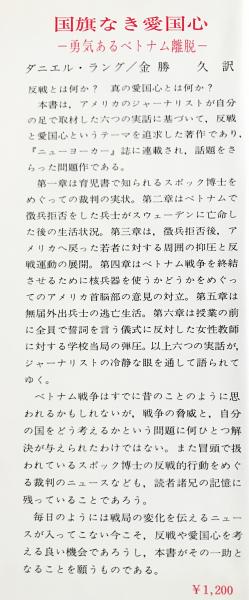 国旗なき愛国心
－勇気あるベトナム離脱－
ダニエル・ラング／金勝　久 訳
反戦とは何か？　真の愛国心とは何か？
本書は、アメリカのジャーナリストが自分
の足で取材した六つの実話に基づいて、反戦
と愛国心というテーマを追求した著作であり、
『ニューヨーカー』誌に連載され、話題をさ
らった問題作である。
第一章は育児書で知られるスポック博士を
めぐっての裁判の実状。第二章はベトナムで
徴兵拒否をした兵士がスウェーデンに亡命し
た後の生活状況。第三章は、徴兵拒否後、ア
メリカへ戻った若者に対する周囲の抑圧と反
戦運動の展開。第四章はベトナム戦争を終結
させるために核兵器を使うかどうかをめぐっ
てのアメリカ首脳部の意見の対立。第五章は
無届外出兵士の逃亡生活。第六章は授業の前
に全員で誓詞を言う儀式に反対した女性教師
に対する学校当局の弾圧。以上六つの実話が、
ジャーナリストの冷静な眼を通して語られて
ゆく。
ベトナム戦争はすでに昔のことのように思
われるかもしれないが、戦争の脅威と、自分
の国をどう考えるかという問題に何ひとつ解
決が与えられたわけではない。また冒頭で扱
われているスポック博士の反戦的行動をめぐ
る裁判のニュースなども、読者諸兄の記憶に
残っていることであろう。
毎日のようには戦局の変化を伝えるニュー
スが入ってこない今こそ、反戦や愛国心を考
える良い機会であろうし、本書がその一助と
なることを願うものである。
￥1,200